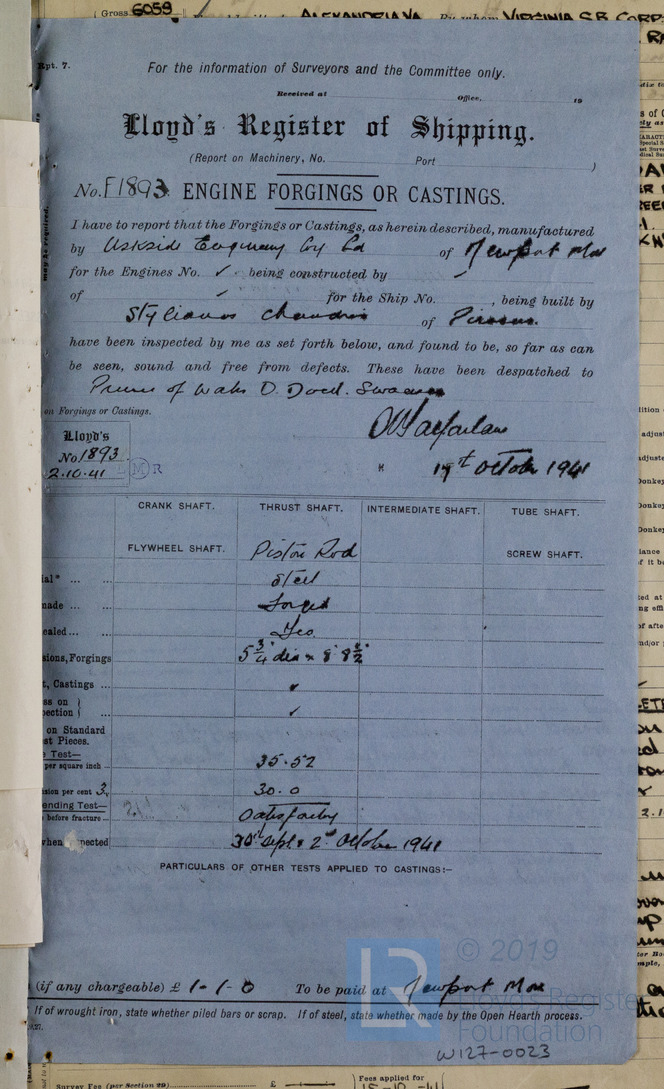 (Gross 6059 ALEXANDRIA VA. By whom VIRGINIA S.B. CORP
Rpt. 7.
For the information of Surveyors and the Committee only.
Received at Office, 19
Lloyd's Register of Shipping.
(Report on Machinery, No. Port )
No. F1893 ENGINE FORGINGS OR CASTINGS.
I have to report that the Forgings or Castings, as herein described, manufactured
by Uskside Engineering Coy Ld of Newport Mon
for the Engines No. ✓ being constructed by ✓
of ✓ for the Ship No. , being built by
Stylianos Chandris of Piraeus.
have been inspected by me as set forth below, and found to be, so far as can
be seen, sound and free from defects. These have been despatched to
Prince of Wales D. Dock. Swansea
on Forgings or Castings.
Lloyd's
No 1893
2.10.41 M R
Macfarlane
17th October 1941
CRANK SHAFT. THRUST SHAFT. INTERMEDIATE SHAFT. TUBE SHAFT.
FLYWHEEL SHAFT. Piston Rod SCREW SHAFT.
ial* ... ... Steel
made ... ... Forged
ealed ... ... Yes
sions, Forgings 5 3/4" dia × 8' 8 1/2"
t, Castings ... ✓
ss on }
pection } ... ✓
on Standard
st Pieces.
Test—
per square inch .. 35.52
sion per cent 3. 30.0
ending Test—
before fracture .. Satisfactory
when inspected 30th Sept & 2nd October 1941
PARTICULARS OF OTHER TESTS APPLIED TO CASTINGS:—
(if any chargeable) £ 1-1-0 To be paid at Newport Mon
If of wrought iron, state whether piled bars or scrap. If of steel, state whether made by the Open Hearth process.
© 2019
LR
Lloyd's Register
Foundation
W127-0023
Survey Fee (per Section 29) £
Fees applied for
15-10-41